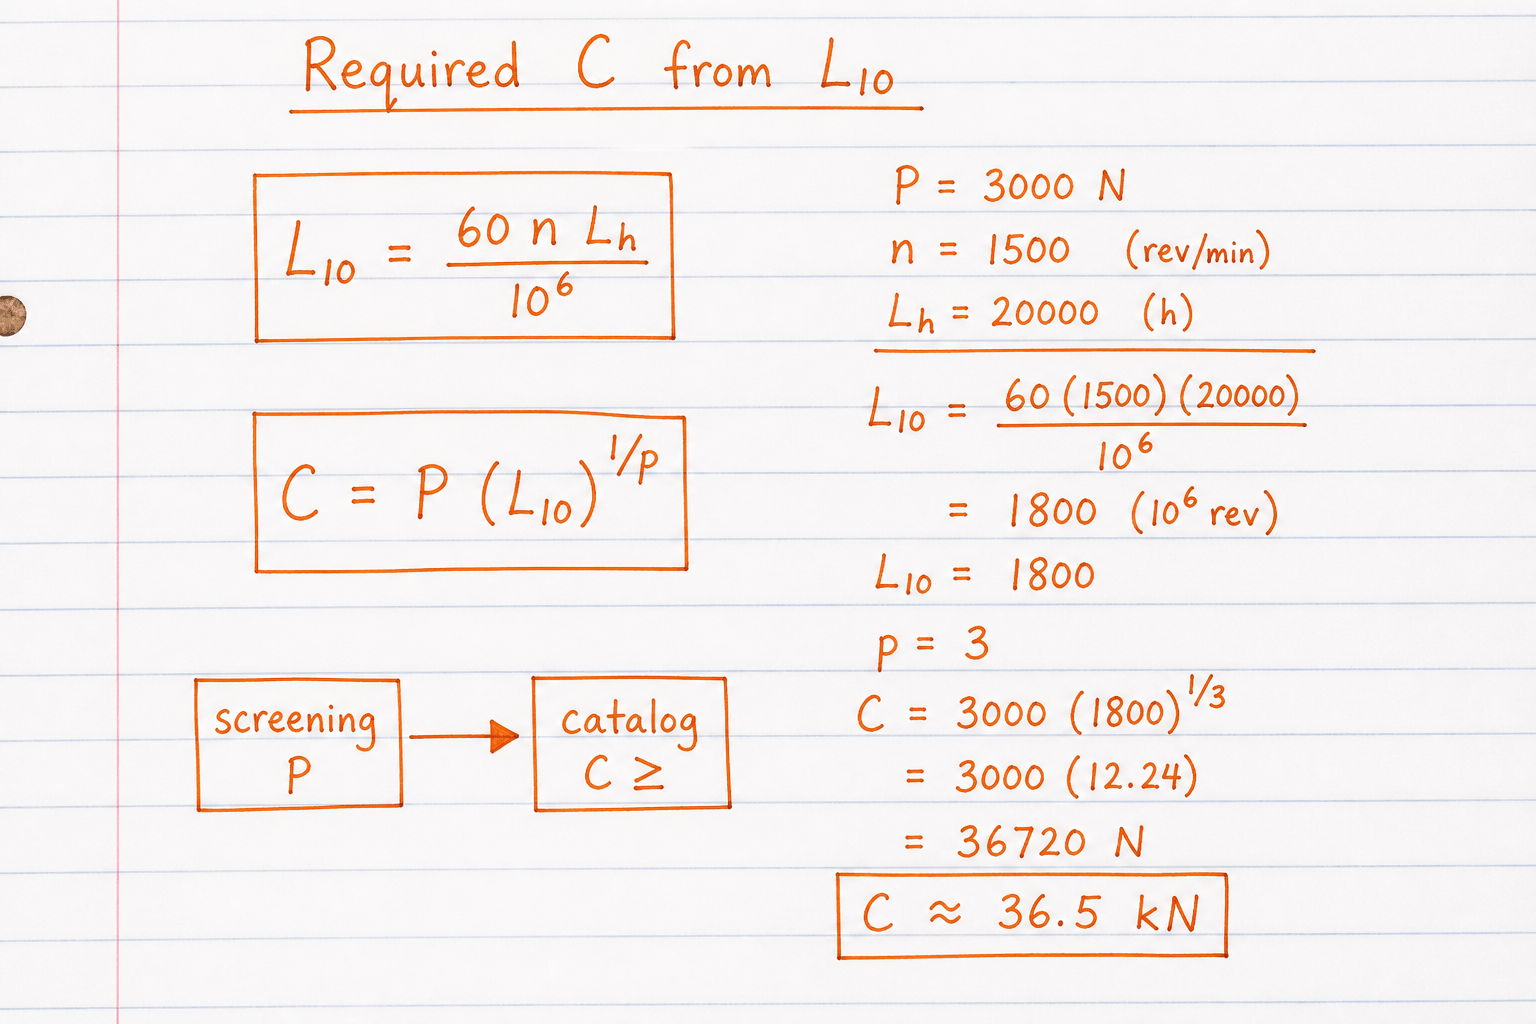 Required C from L₁₀
L₁₀ = 60 n Lₕ / 10⁶
C = P (L₁₀)^1/p
screening
P
catalog
C ≥
P = 3000 N
n = 1500 (rev/min)
Lₕ = 20000 (h)
L₁₀ = 60 (1500) (20000) / 10⁶
= 1800 (10⁶ rev)
L₁₀ = 1800
p = 3
C = 3000 (1800)^1/3
= 3000 (12.24)
= 36720 N
C ≈ 36.5 kN